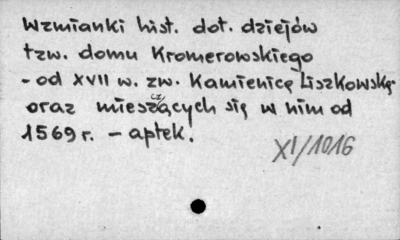 Wzmianki hist. dot. dziejów
tzw. domu Kromerowskiego
- od XVII w. zw. Kamienicę Liszkowską
oraz mieszczących się w nim od
1569 r. - aptek.
XI/1016